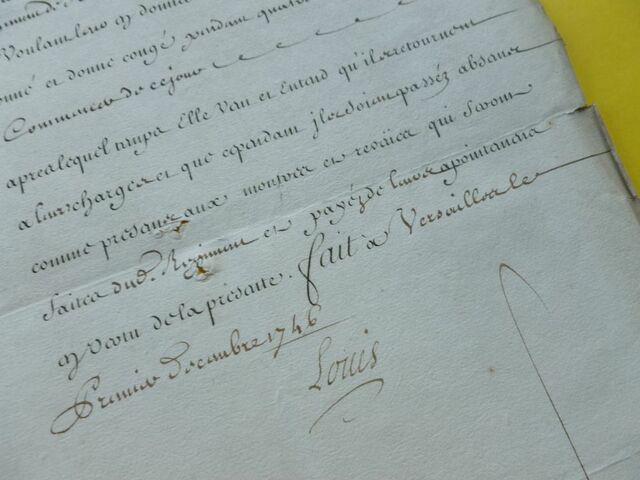 Voulant leur en donner
donné et donne congé pendant quatre
Commencer de ce jour
apres lequel temps Elle Veut et Entend qu'ils retournent
a leurs charges et que cependant jls soient passéz absens
comme presens aux montres et reveües qui seront
faites dud. Regiment et payéz de leurs apointemens
en vertu de la presente. fait a Versailles le
Premier Decembre 1746
Louis